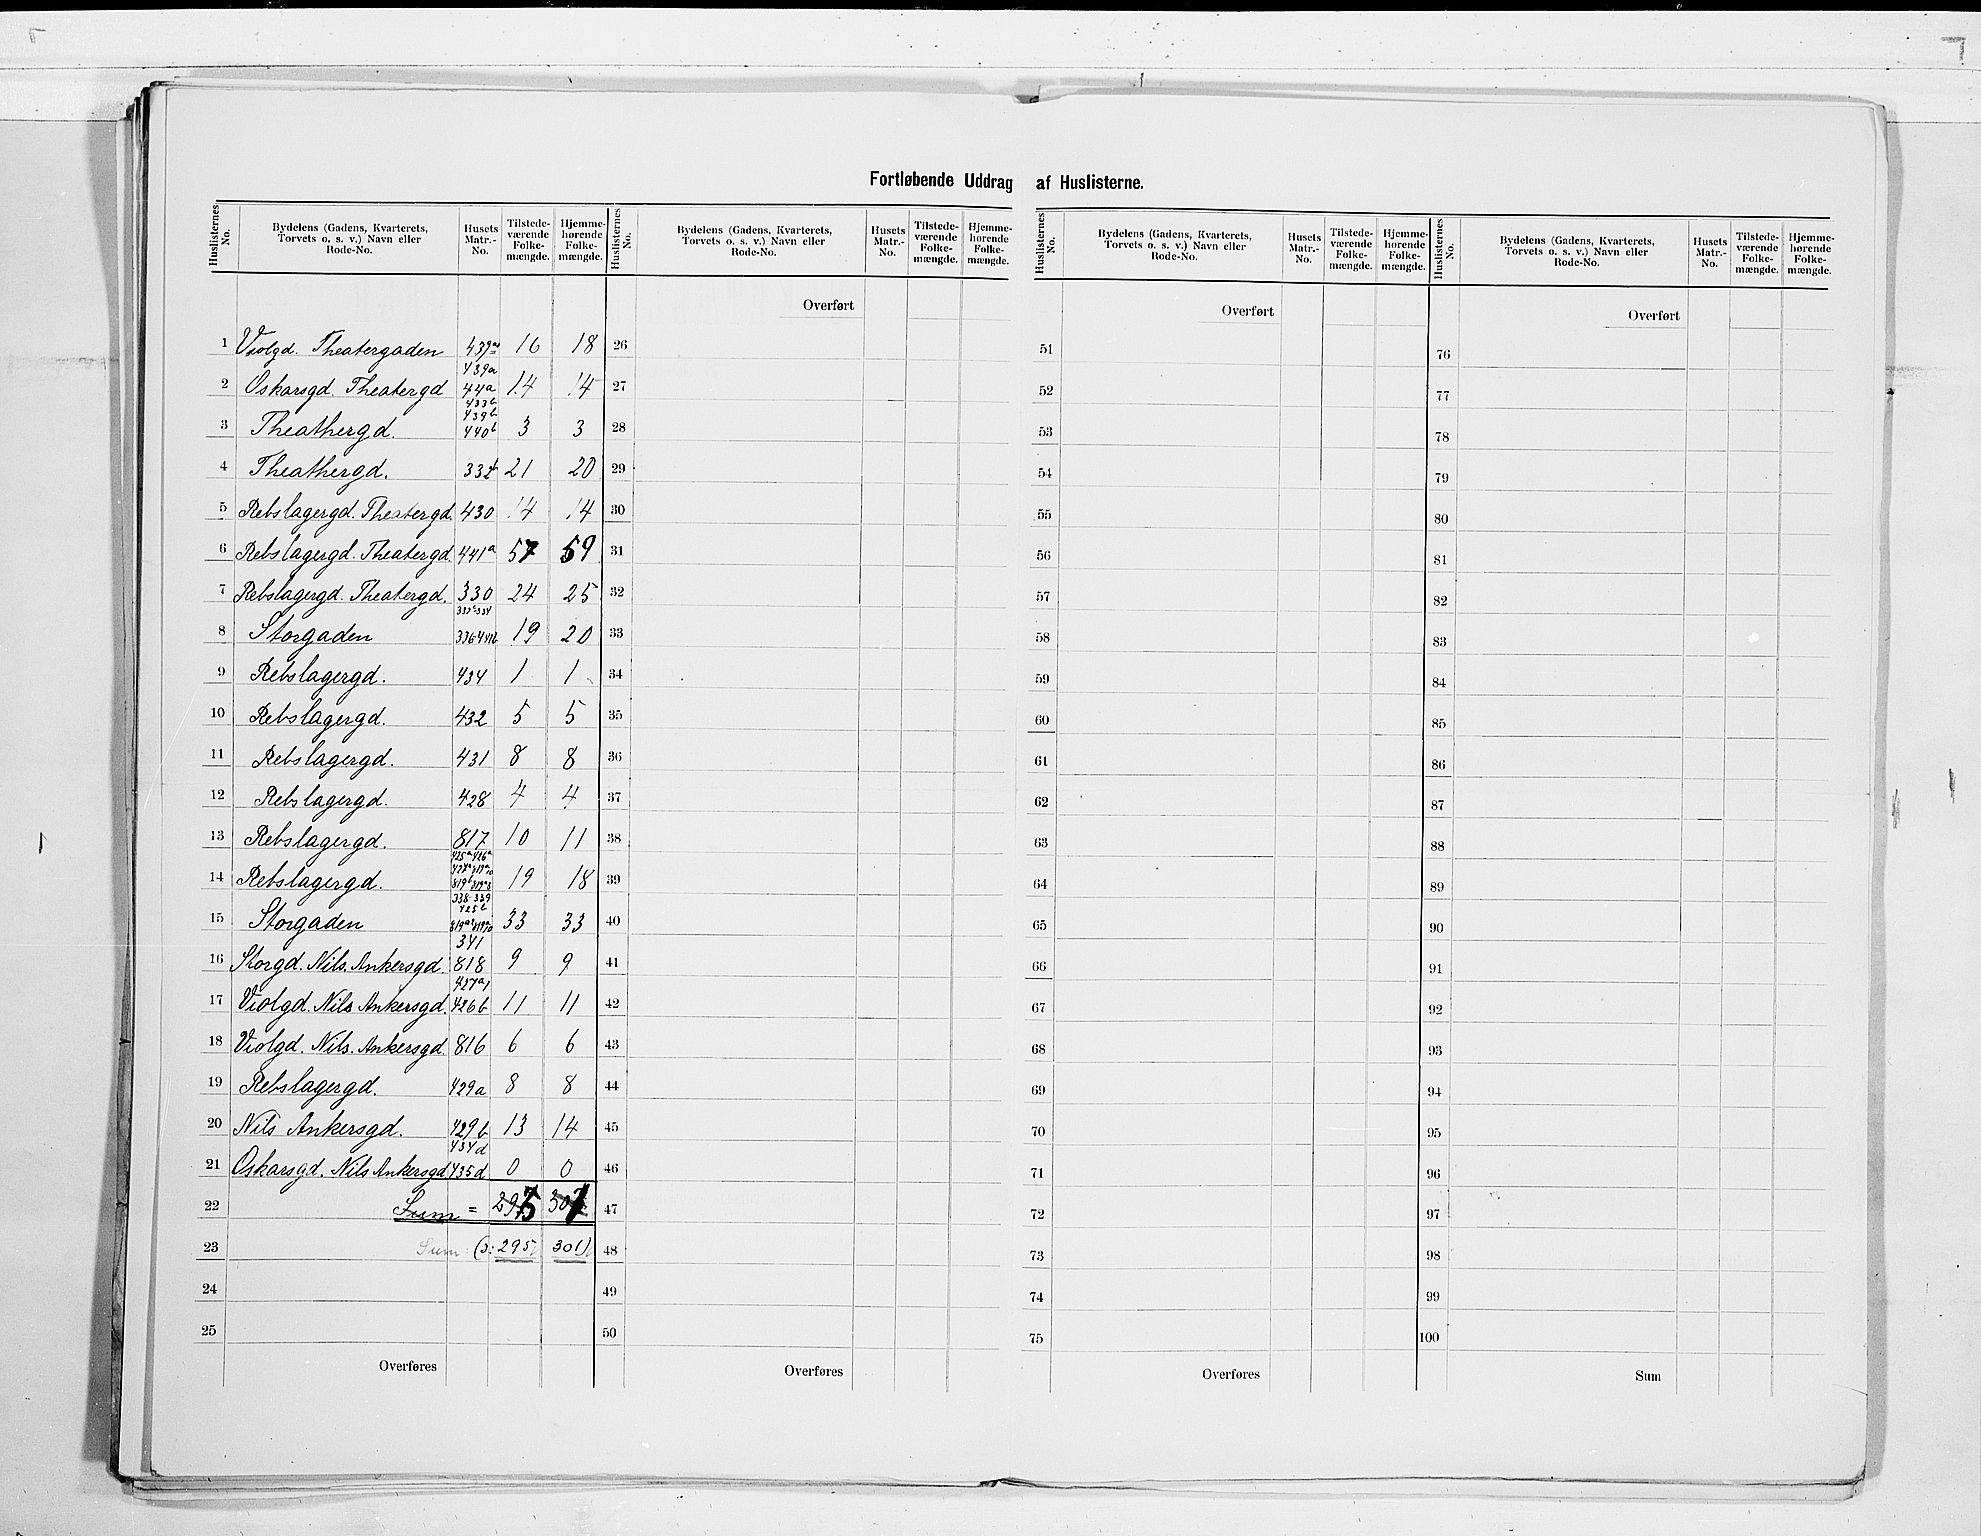 Fortløbende Uddrag af Huslisterne.
Huslisternes No. | Bydelens (Gadens, Kvarterets, Torvets o. s. v.) Navn eller Rode-No. | Husets Matr.-No. | Tilstedeværende Folkemængde. | Hjemmehørende Folkemængde.
Huslisternes No. | Bydelens (Gadens, Kvarterets, Torvets o. s. v.) Navn eller Rode-No. | Husets Matr.-No. | Tilstedeværende Folkemængde. | Hjemmehørende Folkemængde.
Huslisternes No. | Bydelens (Gadens, Kvarterets, Torvets o. s. v.) Navn eller Rode-No. | Husets Matr.-No. | Tilstedeværende Folkemængde. | Hjemmehørende Folkemængde.
Huslisternes No. | Bydelens (Gadens, Kvarterets, Torvets o. s. v.) Navn eller Rode-No. | Husets Matr.-No. | Tilstedeværende Folkemængde. | Hjemmehørende Folkemængde.
Overført Overført Overført
1 Violgd. Theatergaden 16 18 26 51 76
2 Oskarsgd. Theatergd 439a 44a 14 14 27 52 77
3 Theathergd. 433b 439b 440b 3 3 28 53 78
4 Theathergd. 21 20 29 54 79
5 Rebslagergd. Theatergd. 430 14 14 30 55 80
6 Rebslagergd. Theatergd. 441a 57 59 31 56 81
7 Rebslagergd. Theatergd. 330 24 25 32 57 82
8 Storgaden 19 20 33 58 83
9 Rebslagergd. 434 1 1 34 59 84
10 Rebslagergd. 432 5 5 35 60 85
11 Rebslagergd. 431 8 8 36 61 86
12 Rebslagergd. 428 4 4 37 62 87
13 Rebslagergd. 817 10 11 38 63 88
14 Rebslagergd. 425a 426a 19 18 39 64 89
15 Storgaden 338 339 425b 33 33 40 65 90
16 Storgd. Nils. Ankersgd. 341 818 9 9 41 66 91
17 Violgd. Nils Ankersgd. 426b 11 11 42 67 92
18 Violgd. Nils. Ankersgd. 816 6 6 43 68 93
19 Rebslagergd. 429a 8 8 44 69 94
20 Nils Ankersgd. 429b 13 14 45 70 95
21 Oskarsgd. Nils Ankersgd 434d 435d 0 0 46 71 96
22 Sum = 295 301 47 72 97
23 Sum: (ɔ: 295 301) 48 73 98
24 49 74 99
25 50 75 100
Overføres Overføres Overføres Sum